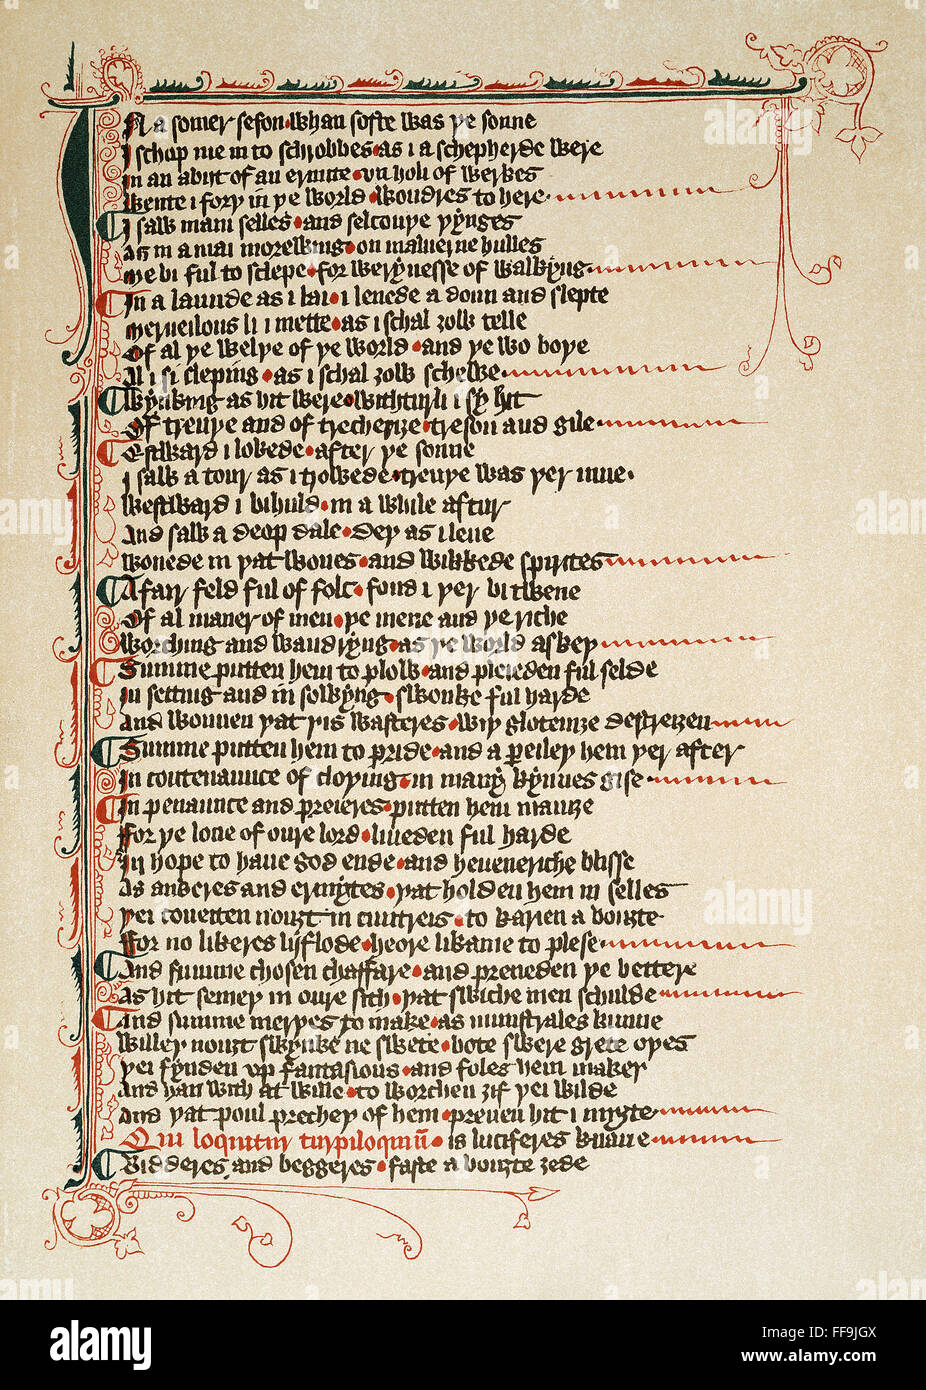 IN a somer seson · whan softe was þe sonne
I schop me in to schrobbes · as i a schepherde were
In an abyt of an ermite · vn holi of werkes
Wente i forþ in þe world · wondres to here
I saw mani selles · and selcouþe þynges
As in a mai morewnyng · on maluerne hulles
Me bi ful to slepe · for werynesse of walkyng
In a launde as i lai · i lenede a doun and slepte
Merueilous li i mette · as i schal ȝow telle
Of al þe welþe of þe world · and þe wo boþe
Al i si sleping · as i schal ȝow schewe
Wynking as hit were · witturli i sy hit
Of treuþe and of trecherȝe · treson and gile
Estward i lokede · after þe sonne
I saw a tour as i trowede · treuþe was þer inne
Westward i bihuld · in a while aftur
And saw a deop dale · deþ as i leue
Wonede in þat wones · and wikkede spirites
A fair feld ful of folc · fond i þer bitwene
Of al maner of men · þe mene and þe riche
Worching and wandryng · as þe world askeþ
Summe putten hem to plow · and pleieden ful selde
In setting and in sowyng · swonke ful harde
And wonnen þat þis wasteres · wiþ glotenȝe destreiȝen
Summe putten hem to pride · and a peileþ hem þer after
In contenaunce of cloþing · in many kynnes gise
In penaunce and preieres · putten hem manȝe
For þe loue of oure lord · liueden ful harde
In hope to haue god ende · and heueneriche blisse
As ankeres and ermytes · þat holden hem in selles
Þei coueiten nouȝt in cuntreis · to karien a bouȝte
For no likeres liflode · heore likame to plese
And summe chosen chaffare · and preueden þe bettere
As hit semeþ in oure siȝt · þat swiche men schulde
And summe merþes to make · as munstrales kunne
Willeþ nouȝt swynke ne swete · bote swere grete oþes
Þei fynden vp fantasious · and foles hem makeþ
And han with at wille · to worchen ȝif þei wilde
And þat poul precheþ of hem · preuen hit i myȝte
Qui loquitur turpiloquium · is luciferes knaue
Bidderes and beggeres · faste a bouȝte ȝede
alamy
Image ID: FF9JGX
www.alamy.com